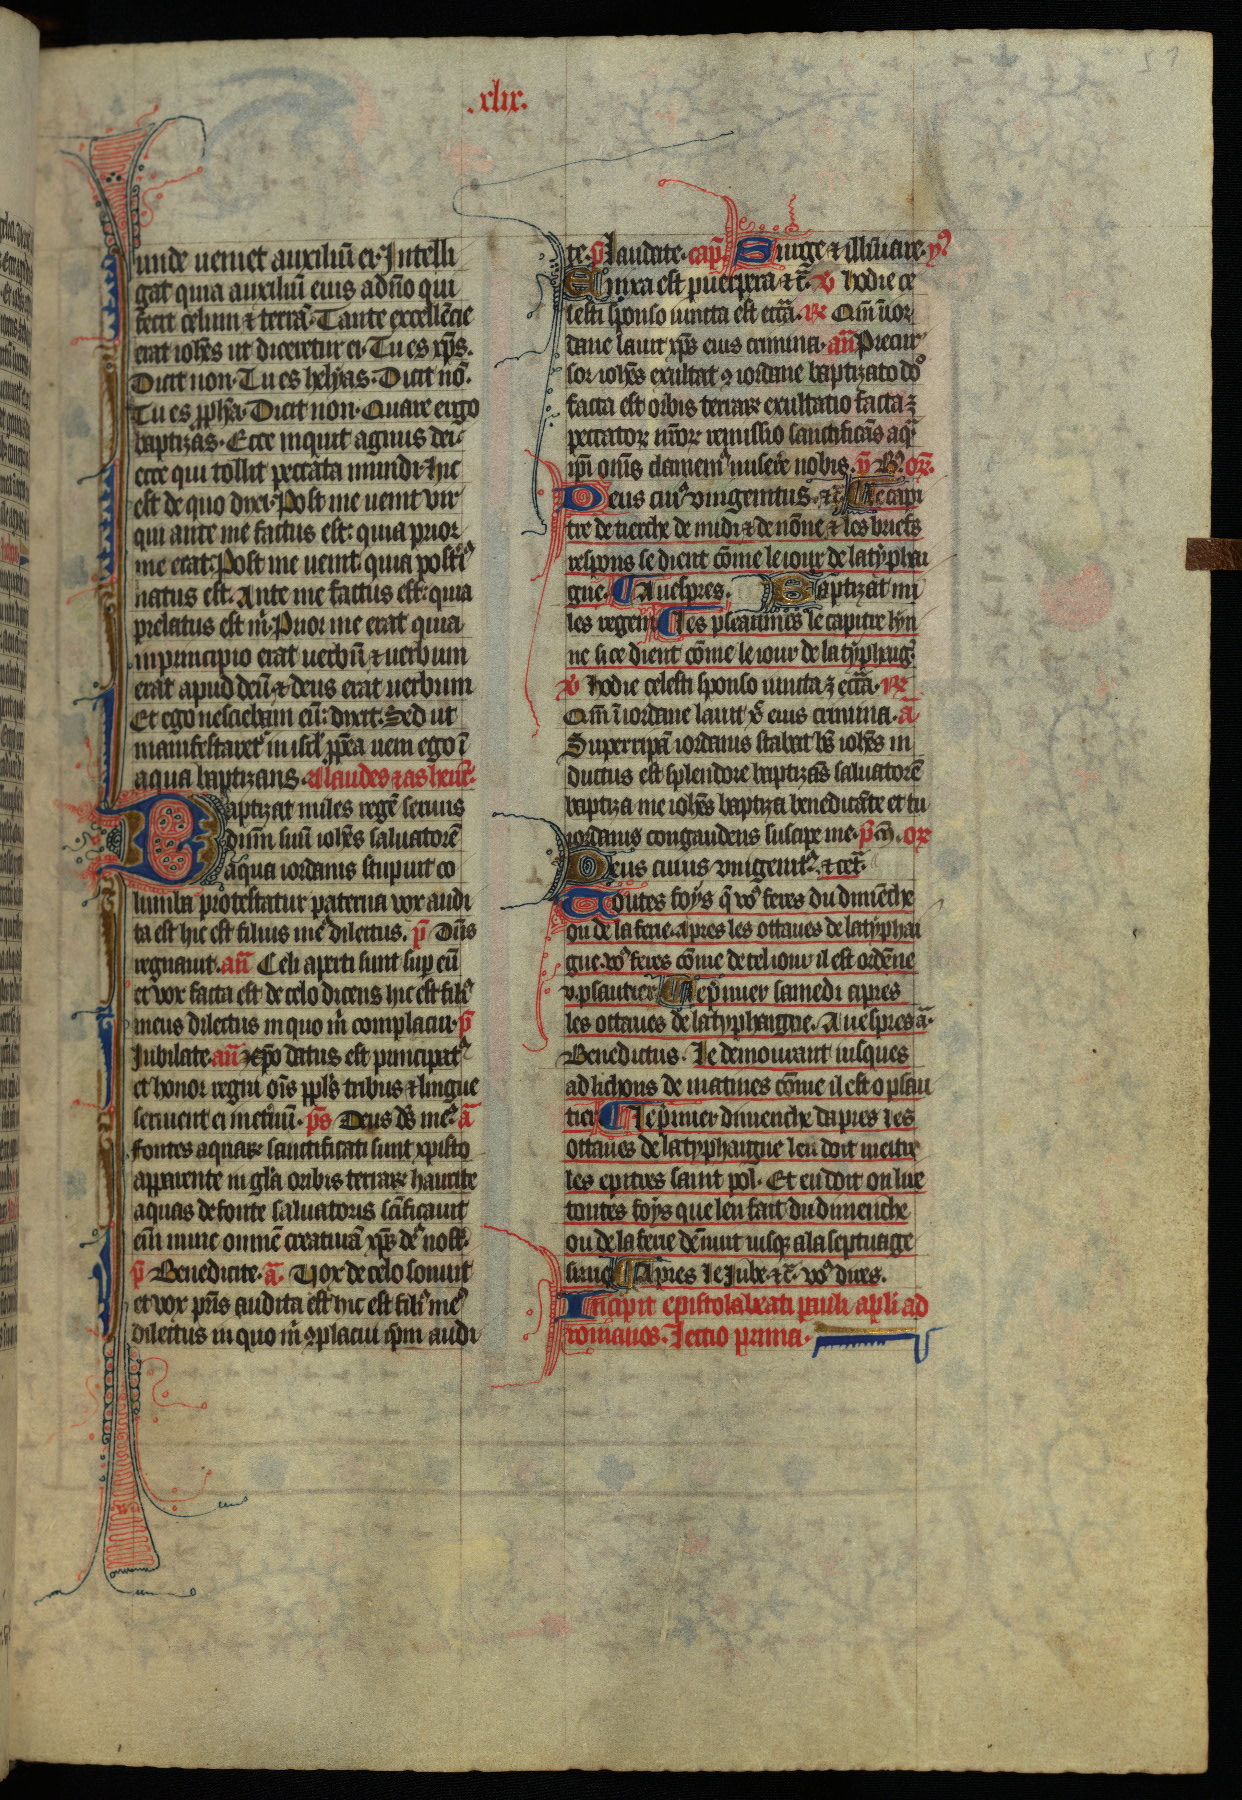 .xlix.
unde veniet auxiliū ei. Intelli
gat quia auxiliū eius a dn̄o qui
fecit celum ⁊ terrā. Tante excellēcie
erat ioh̄es ut diceretur ei. Tu es xp̄s.
Dicit non. Tu es helyas. Dicit nō.
Tu es pph̄a. Dicit non. Quare ergo
baptizas. Ecce inquit agnus dei.
ecce qui tollit peccata mundi. hic
est de quo dixi. Post me venit vir
qui ante me factus est: quia prior
me erat. Post me venit: quia postꝰ
natus est. Ante me factus est: quia
prelatus est m̄. Prior me erat quia
in principio erat verbū ⁊ verbum
erat apud deū ⁊ deus erat verbum
Et ego nesciebam eū: dixit. Sed ut
manifestaret᷑ in isrl̄ ppt̄ea veni ego ī
aqua baptizans. A laudes ⁊ as heur̄.
Baptizat miles regē seruus
dominū suū ioh̄es saluatorē
aqua iordanis stupuit co
lumba protestatur paterna vox audi
ta est hic est filius meꝰ dilectus. p̄ Dn̄s
regnauit. an̄ Celi aperti sunt suꝑ eū
et vox facta est de celo dicens hic est filiꝰ
meus dilectus in quo m̄ complacui. p̄
Iubilate. an̄ xp̄o datus est principatꝰ
et honor regni oīs ppl̄s tribus ⁊ lingue
seruient ei in et̄nū. p̄s Deus ds̄ meꝰ ā
fontes aquaꝝ sanctificati sunt xpisto
apparente in gl̄a orbis terraꝝ haurite
aquas de fonte saluatoris sc̄ificauit
em̄ nunc omnē creaturā xp̄s dꝰ nost̄.
p̄ Benedicite. ā. Vox de celo sonuit
et vox pr̄is audita est hic est filiꝰ meꝰ
dilectus in quo m̄ ꝯplacui ip̄m audi
te. p̄ laudate. cap̄. Surge ⁊ illūīare. yꝰ
Enixa est puerpera ⁊ c̄. v̄ hodie ce
lesti sponso iuncta est eccīa. ꝶ Qm̄ ī ior
dane lauit xp̄s eius crimina. an̄ Precur
sor ioh̄es exultat ꝯ iordane baptizato dn̄o
facta est orbis terraꝝ exultatio facta ē
peccatoꝝ nr̄oꝝ remissio sanctificās aq̄ꝫ
ip̄i om̄s clamemꝰ miserē nobis. p̄ B. or̄.
Deus cuiꝰ vnigenitus. ⁊ c̄. Le capi
tre de tierche de midi ⁊ de nōne ⁊ les briefz
respons se dient cōme le iour de la typhai
gne. A vespres. Baptizat mi
les regem Les pseaumes le capitre hym
ne si ce dient cōme le iour de la typhaigꝫ
v̄ hodie celesti sponso iuncta ē eccīa. ꝶ
Qm̄ ī iordane lauit xp̄s eius crimina. ā
Super ripā iordanis stabat bs̄ ioh̄es in
ductus est splendore baptizās saluatorē
baptiza me ioh̄es baptiza benedicāte et tu
iordanis congaudens suscipe me. p̄ m̄. or̄
Deus cuius vnigenitꝰ. ⁊ cet̄.
Toutes foys q̄ vꝰ feres du dimēche
ou de la ferie. Apres les ottaues de la typhai
gne. vꝰ feres cōme de cel iour il est ordene
v. psautier Le p̄mier samedi apres
les ottaues de la typhaigne. A vespres ā.
Benedictus. Le demourant iusques
ad lichons de matines cōme il est o psau
tier Le p̄mier dimenche dapres les
ottaues de la typhaigne len doit mettre
les epitres saint pol. Et en doit on lire
toutes foys que len fait du dimenche
ou de la ferie de nuit iusqꝫ a la septuage
sime Apres le Iube. ⁊ c̄. vꝰ dires.
Incipit epistola beati pauli apl̄i ad
romanos. lectio prima.